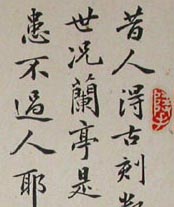 昔人得古刻數
世況蘭亭是
患不過人耶